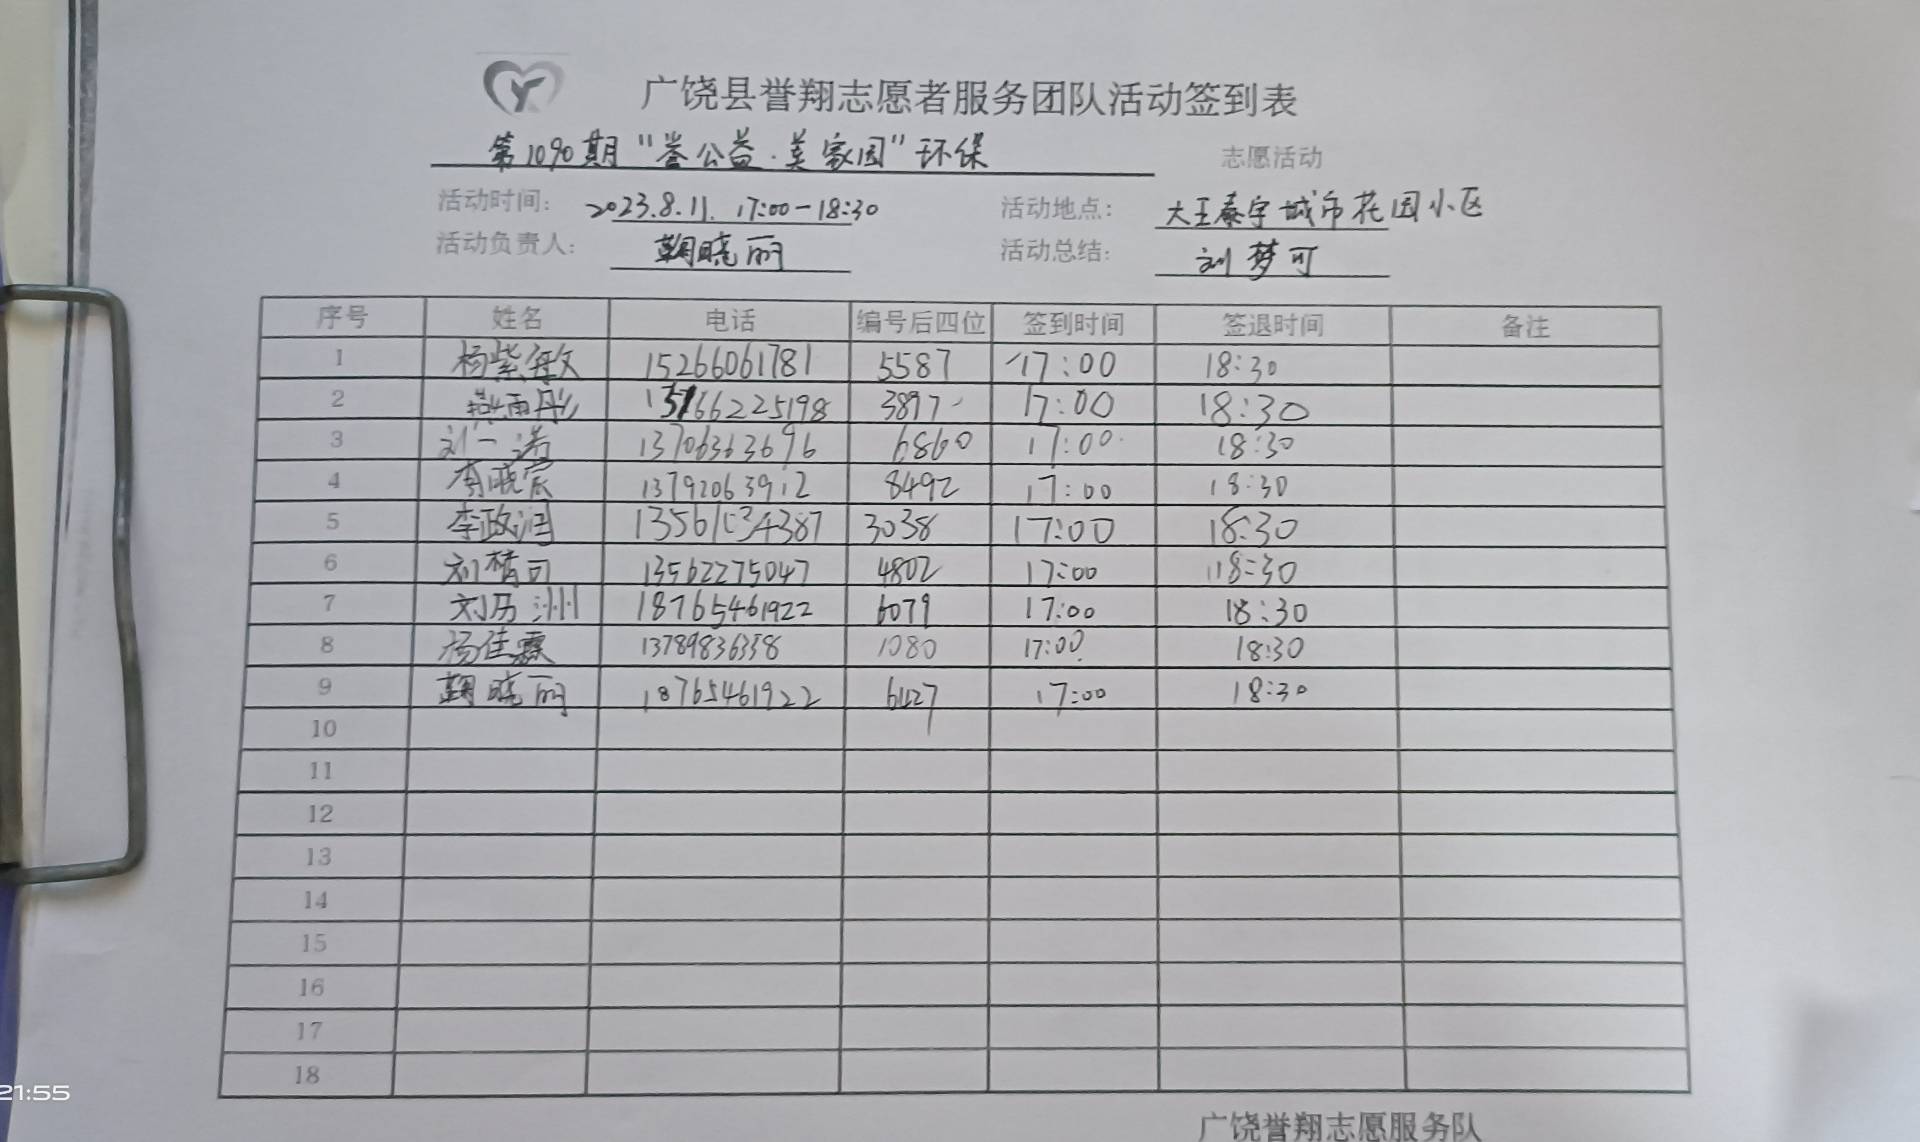 广饶县誉翔志愿者服务团队活动签到表
第1090期“誉公益·美家园”环保 志愿活动
活动时间: 2023.8.11. 17:00-18:30 活动地点: 大王泰宇城市花园小区
活动负责人: 鞠晓丽 活动总结: 刘梦可
序号 姓名 电话 编号后四位 签到时间 签退时间 备注
1 杨紫敏 15266061781 5587 17:00 18:30
2 雨彤 3897 17:00 18:30
3 刘一诺 13706363696 6860 17:00 18:30
4 李晓宸 13792063912 8492 17:00 18:30
5 李政润 3038 17:00 18:30
6 刘梦可 13562275047 4802 17:00 18:30
7 刘乃洲 18765461922 6079 17:00 18:30
8 杨佳霖 1080 17:00 18:30
9 鞠晓丽 18765461922 6427 17:00 18:30
10
11
12
13
14
15
16
17
18
广饶誉翔志愿服务队
21:55